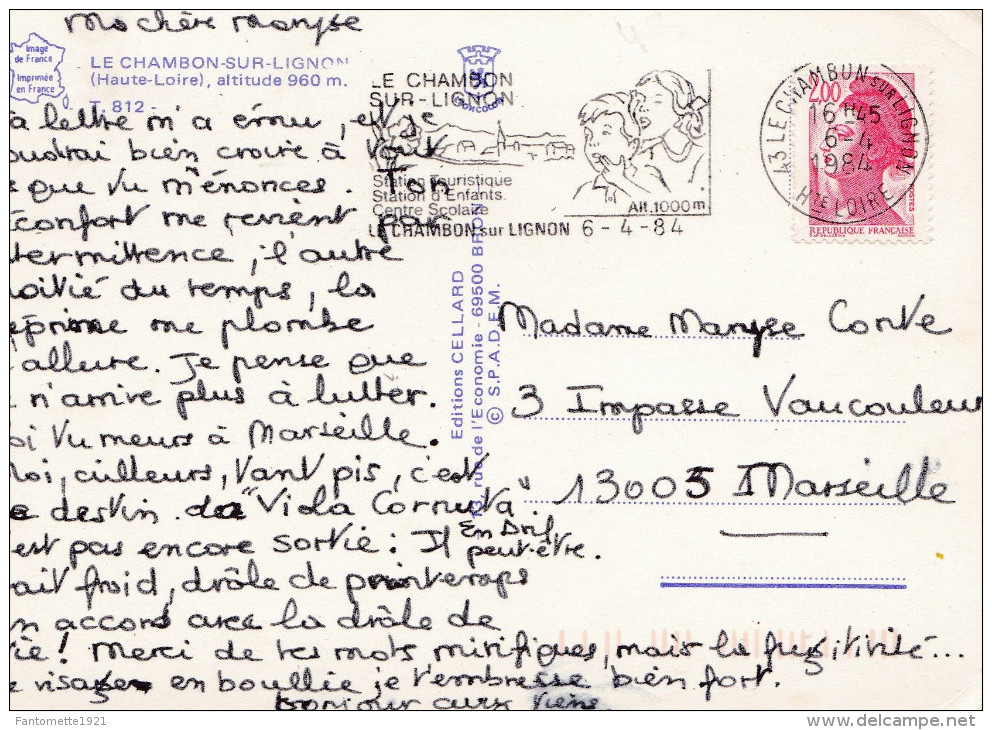 Ma chère Maryse
Image
de France
Imprimée
en France
LE CHAMBON-SUR-LIGNON
(Haute-Loire), altitude 960 m.
T. 812 -
à lettre m'a ému, et je
oudrai bien croire à tout
que tu m'énonces. Ton
éconfort me revient par
termittence, l'autre
oitié du temps, la
éprime me plombe
'allure. Je pense que
n'arrive plus à lutter.
oi tu meurs à Marseille.
oi, ailleurs, tant pis, c'est
e destin de "Viola Cornuta"
est pas encore sortie : Il peut-être.
En Avril
ait froid, drôle de printemps
n accord avec la drôle de
ie ! Merci de tes mots mirifiques, mais la fugitivité...
e visage en bouillie je t'embrasse bien fort.
Bonjour aux
Goncourt
Editions CELLARD
rue de l'Economie - 69500 BRON
© S.P.A.D.E.M.
LE CHAMBON
SUR-LIGNON
Station Touristique
Station d'Enfants
Centre Scolaire
Alt. 1000 m
LE CHAMBON sur LIGNON 6 - 4 - 84
43 LE CHAMBON SUR LIGNON
16 H 45
6 - 4
1984
HTE LOIRE
2,00
POSTES
REPUBLIQUE FRANCAISE
Madame Maryse Conte
3 Impasse Vaucouleur
13005 Marseille
Fantomette1921
delcampe.net